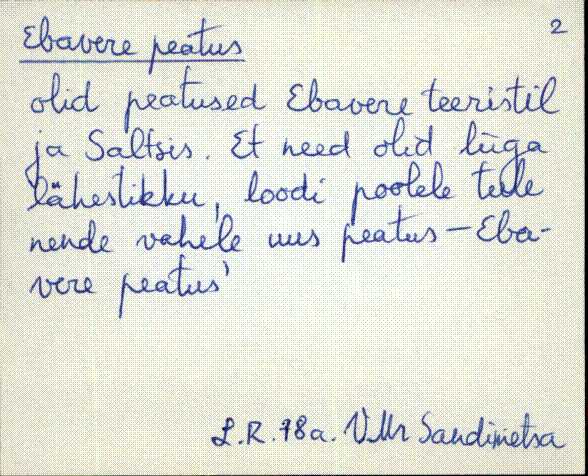 2
Ebavere peatus
olid peatused Ebavere teeristil
ja Saltsis. Et need olid liiga
lähestikku, loodi poolele teele
nende vahele uus peatus – Eba-
vere peatus'
L.R. 78a. VMr Sandimetsa